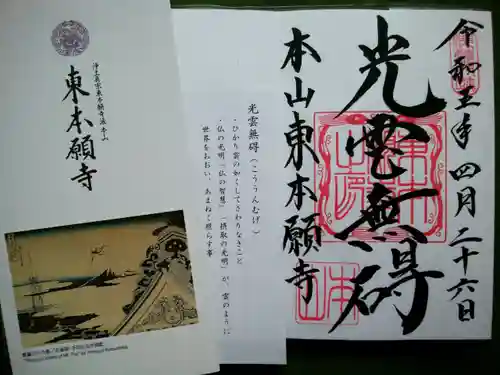 令和五年四月二十六日
光雲無碍
本山東本願寺
光雲無碍（こううんむげ）
・ひかり雲の如くしてさわりなきこと
・仏の光明「仏の智慧」「摂取の光明」が、雲のように
世界をおおい、あまねく照らす事
浄土真宗東本願寺派本山
東本願寺